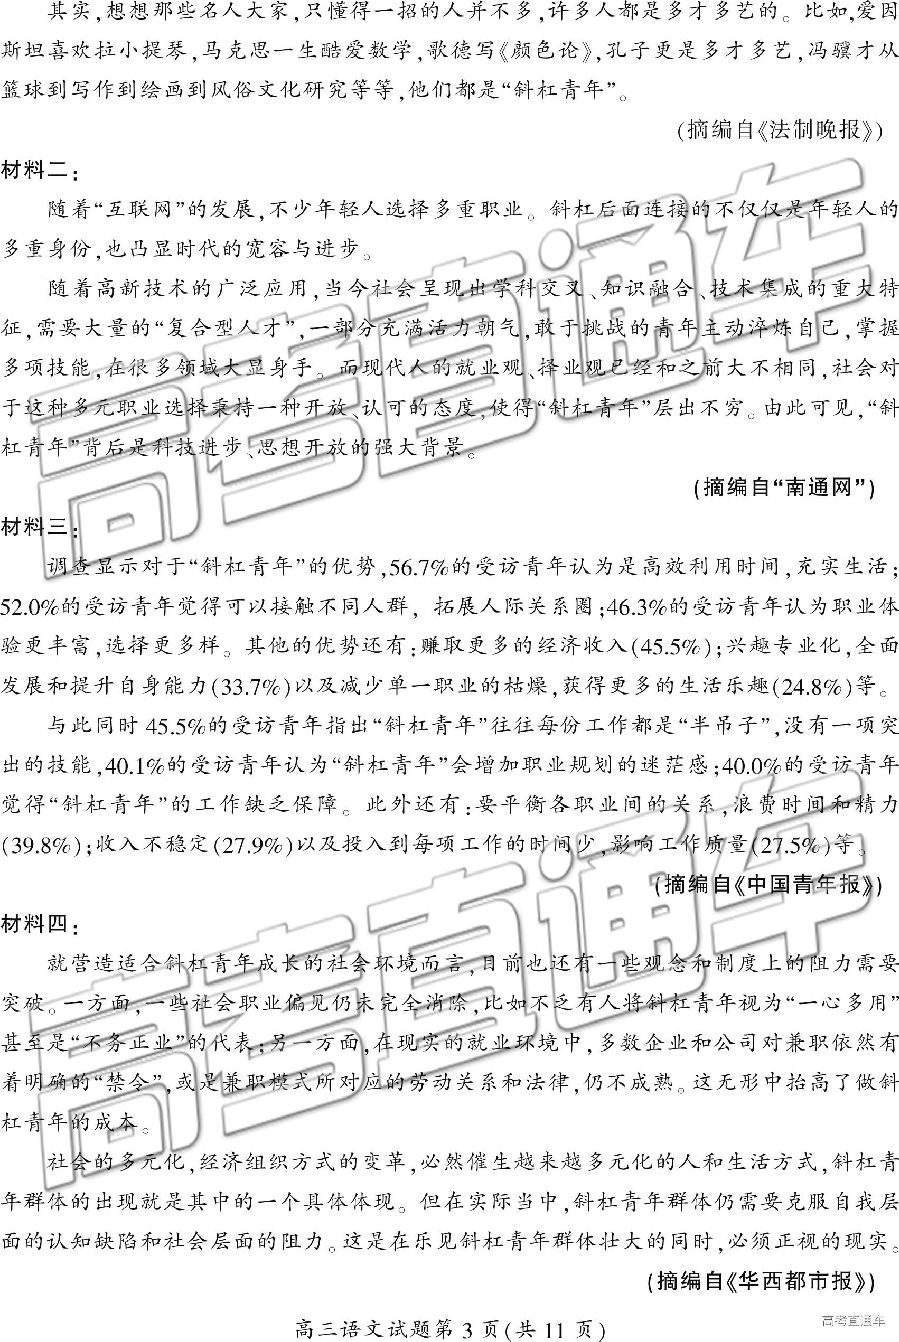 其实,想想那些名人大家,只懂得一招的人并不多,许多人都是多才多艺的。比如,爱因
斯坦喜欢拉小提琴,马克思一生酷爱数学,歌德写《颜色论》,孔子更是多才多艺,冯骥才从
篮球到写作到绘画到风俗文化研究等等,他们都是“斜杠青年”。
(摘编自《法制晚报》)
材料二:
随着“互联网”的发展,不少年轻人选择多重职业。斜杠后面连接的不仅仅是年轻人的
多重身份,也凸显时代的宽容与进步。
随着高新技术的广泛应用,当今社会呈现出学科交叉、知识融合、技术集成的重大特
征,需要大量的“复合型人才”,一部分充满活力朝气,敢于挑战的青年主动淬炼自己,掌握
多项技能,在很多领域大显身手。而现代人的就业观、择业观已经和之前大不相同,社会对
于这种多元职业选择秉持一种开放、认可的态度,使得“斜杠青年”层出不穷。由此可见,“斜
杠青年”背后是科技进步、思想开放的强大背景。
(摘编自“南通网”)
材料三:
调查显示对于“斜杠青年”的优势,56.7%的受访青年认为是高效利用时间,充实生活;
52.0%的受访青年觉得可以接触不同人群，拓展人际关系圈;46.3%的受访青年认为职业体
验更丰富,选择更多样。其他的优势还有:赚取更多的经济收入(45.5%);兴趣专业化,全面
发展和提升自身能力(33.7%)以及减少单一职业的枯燥,获得更多的生活乐趣(24.8%)等。
与此同时45.5%的受访青年指出“斜杠青年”往往每份工作都是“半吊子”,没有一项突
出的技能,40.1%的受访青年认为“斜杠青年”会增加职业规划的迷茫感;40.0%的受访青年
觉得“斜杠青年”的工作缺乏保障。此外还有:要平衡各职业间的关系,浪费时间和精力
(39.8%);收入不稳定(27.9%)以及投入到每项工作的时间少,影响工作质量(27.5%)等。
(摘编自《中国青年报》)
材料四:
就营造适合斜杠青年成长的社会环境而言,目前也还有一些观念和制度上的阻力需要
突破。一方面,一些社会职业偏见仍未完全消除,比如不乏有人将斜杠青年视为“一心多用”
甚至是“不务正业”的代表;另一方面,在现实的就业环境中,多数企业和公司对兼职依然有
着明确的“禁令”,或是兼职模式所对应的劳动关系和法律,仍不成熟。这无形中抬高了做斜
杠青年的成本。
社会的多元化,经济组织方式的变革,必然催生越来越多元化的人和生活方式,斜杠青
年群体的出现就是其中的一个具体体现。但在实际当中,斜杠青年群体仍需要克服自我层
面的认知缺陷和社会层面的阻力。这是在乐见斜杠青年群体壮大的同时,必须正视的现实。
(摘编自《华西都市报》)
高三语文试题第3页(共11页)
高考直通车
高考直通车
高考直通车